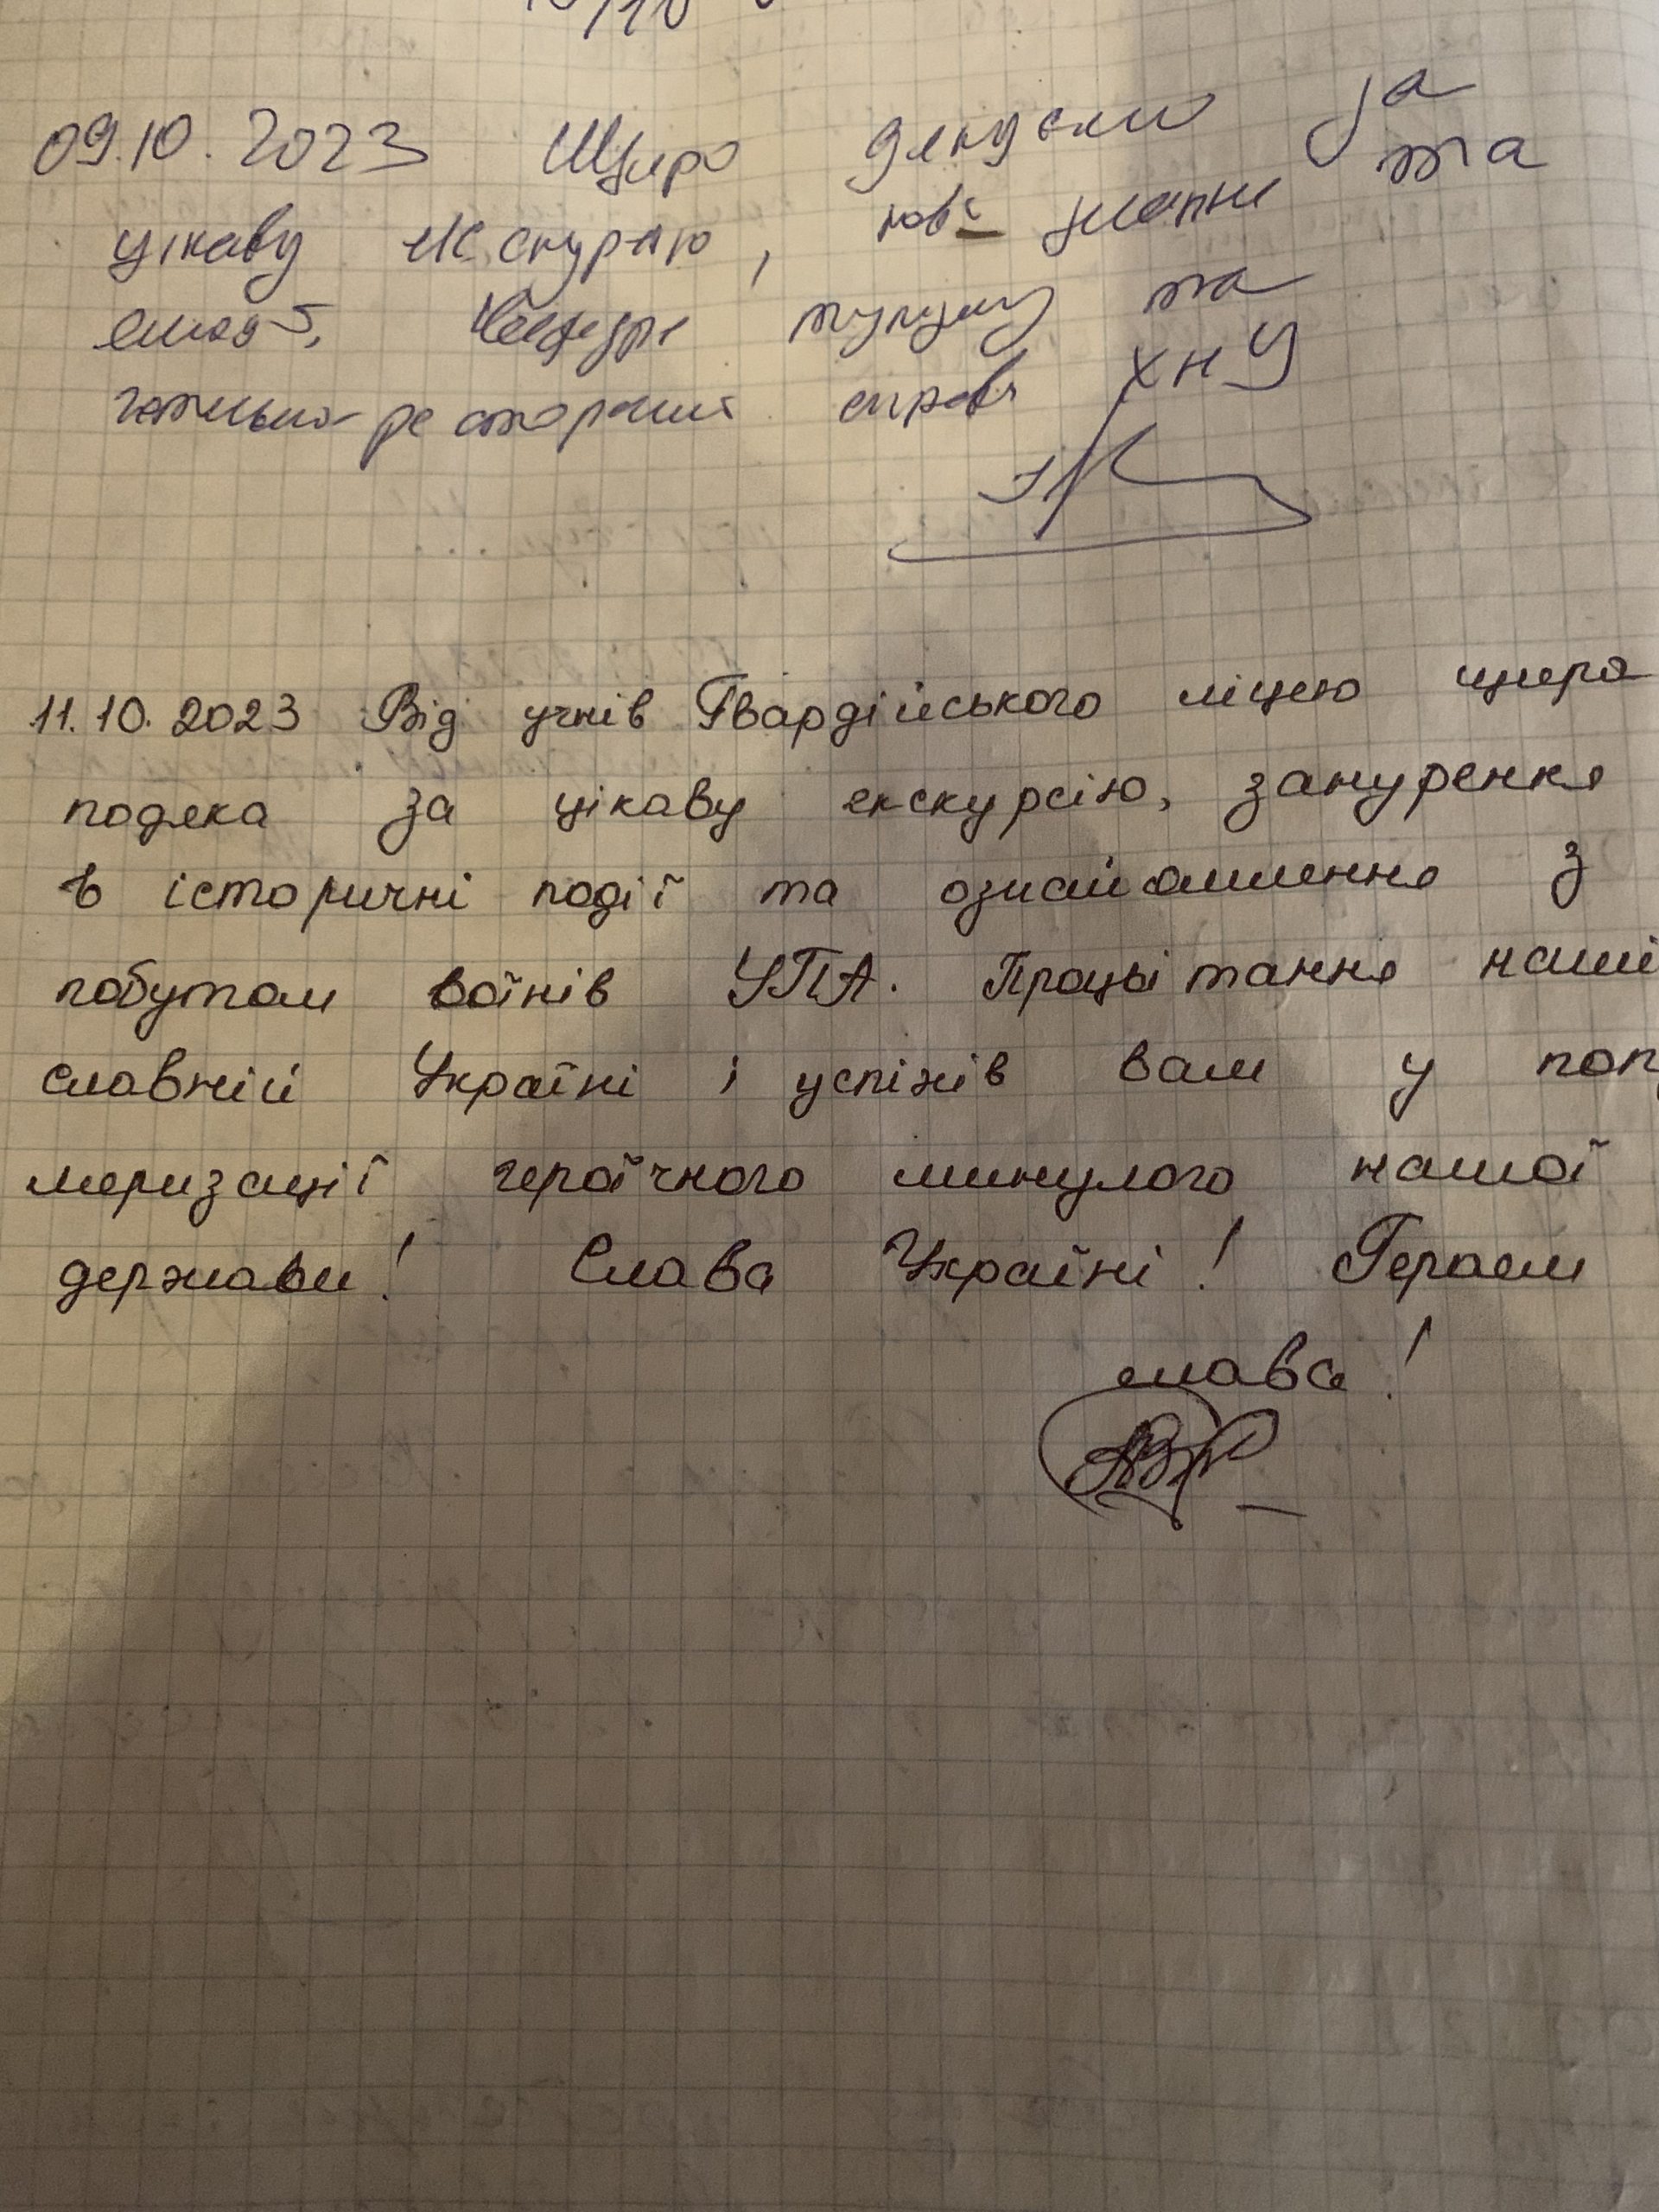 09.10.2023 Щиро дякуємо за
цікаву екскурсію, нові знання та
емоції. Кафедра туризму та
готельно-ресторанної справи ХНУ
11.10.2023 Від учнів Гвардійського ліцею щира
подяка за цікаву екскурсію, занурення
в історичні події та ознайомлення з
побутом воїнів УПА. Процвітання нашій
славній Україні і успіхів вам у попу
меризації героїчного минулого нашої
держави! Слава Україні! Героям
слава!